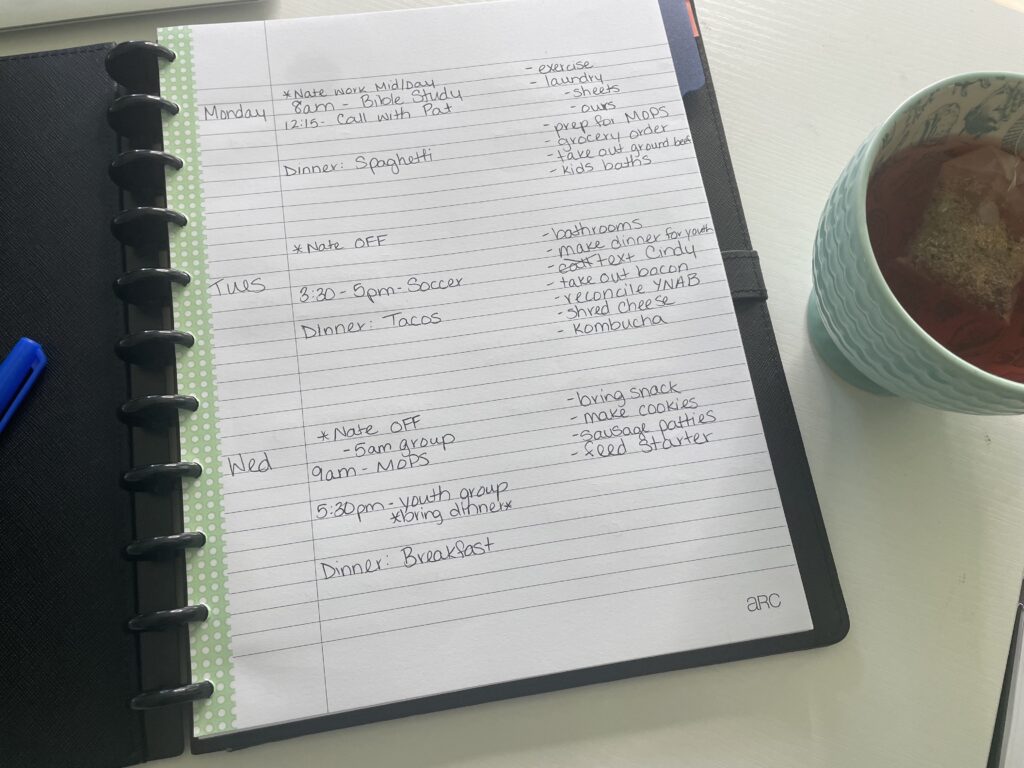 *Nate work Mid/Day
Monday
8am - Bible Study
12:15- Call with Pat
Dinner: Spaghetti
- exercise
- laundry
- sheets
- ours
- prep for MOPS
- grocery order
- take out ground beef
- kids baths
*Nate OFF
Tues
3:30 - 5pm - Soccer
Dinner: Tacos
- bathrooms
- make dinner for youth
- text Cindy
- take out bacon
- reconcile YNAB
- shred cheese
- Kombucha
*Nate OFF
- 5am group
Wed
9am - MOPS
5:30pm - youth group
*bring dinner*
Dinner: Breakfast
- bring snack
- make cookies
- sausage patties
- feed starter
aRC